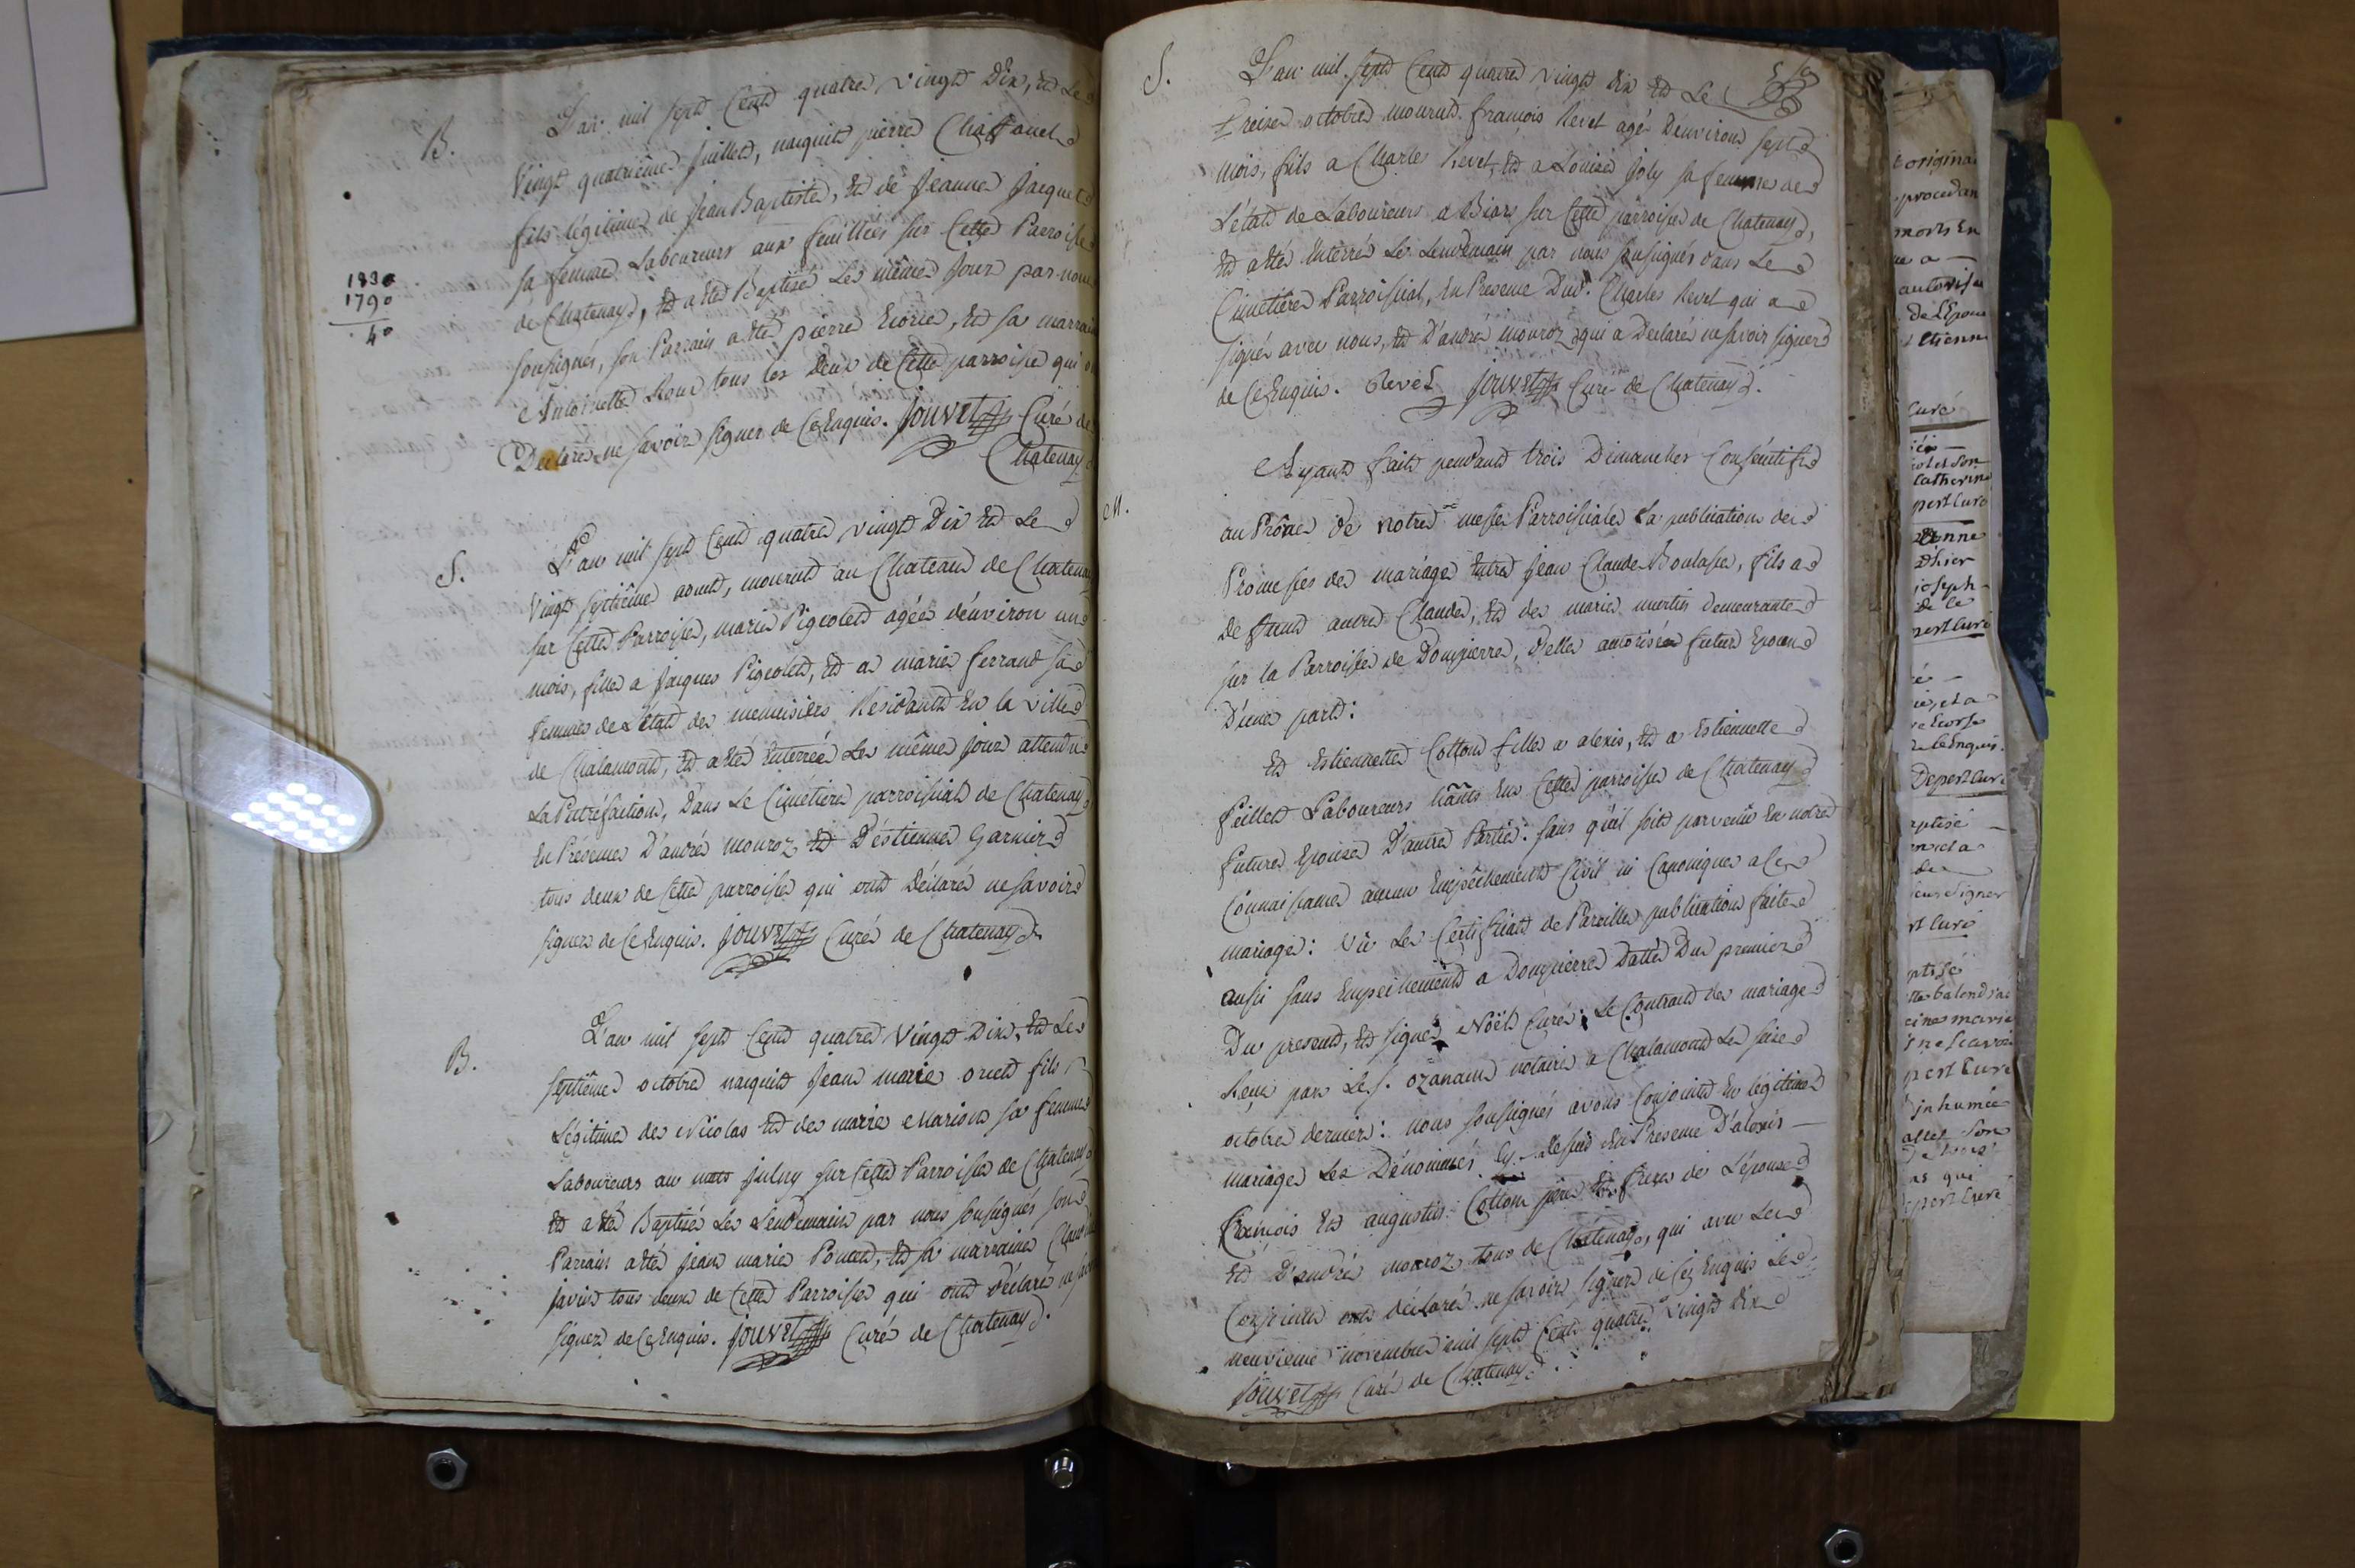 B.
L'an mil sept Cent quatre vingt Dix, et Le
vingt quatriême Juillet, naquit pierre Chaffanel
fils légitime de Jean Baptiste, et de Jeanne Jacquet
sa femme Laboureurs aux feuillées sur Cette Parroisse
de Chatenay, et a été Baptisé Le même Jour par nous
1830
1790
40
soussignés, son Parrain a été pierre, et sa marraine
Antoinette Roux tous les deux de Cette parroisse qui
Déclaré ne savoir signer de Ce Enquis. Jouvet Curé de
Chatenay
S.
L'an mil sept Cent quatre vingt Dix et Le
vingt septiême aout, mourut au Chateau de Chatenay
sur Cette Parroisse, marie Pigeolet agée d'énviron un
mois, fille a Jacques Pigeolet, et a marie ferrand sa
femme de L'état de menuisiers Résidants En la ville
de Chalamont, et a été Enterrée Le même jour attendu
La Putréfaction, Dans Le Cimétiere parroissial de Chatenay
En Présence D'andré mouroz et D'éstienne Garnier
tous deux de Cette parroisse qui ont Déclaré ne savoir
signer de Ce Enquis. Jouvet Curé de Chatenay
B.
L'an mil sept Cent quatre vingt Dix, et Le
septiême octobre naquit Jean marie oriet fils
Légitime de Nicolas et de marie Marion sa femme
Laboureurs au mas Juliny sur Cette Parroisse de Chatenay
et a été Baptisé Le Lendemain par nous soussignés son
Parrain a été Jean marie Poncet, et sa marraine
Javier tous deux de Cette Parroisse qui ont déclaré ne
signer de Ce Enquis. Jouvet Curé de Chatenay.
S.
L'an mil sept Cent quatre vingt dix et Le
treize octobre mourut françois Revet agé D'énviron sept
mois, fils a Charles Revet, et a Louise Joly sa femme de
L'état de Laboureurs a Biars sur Cette parroisse de Chatenay,
et a été Enterré Le Lendemain par nous soussignés dans Le
Cimetiêre Parroissial, En Presence Dud. Charles Revet qui a
signé avec nous, et D'andré mouroz qui a Declaré ne savoir signer
de Ce Enquis. Revet Jouvet Curé de Chatenay.
M.
Ayant fait pendant trois Dimanches Consécutifs
au Prône de notre messe Parroissiale La publication de
Promesses de mariage Entre Jean Claude Boulasse, fils a
De feu autre Claude, et de marie murtin Demeurante
sur la Parroisse de Dompierre, d'elle autorisé futur Epoux
D'une part:
et Estiennette Cotton fille a alexis, et a Estiennette
Peillet Laboureurs hants En Cette parroisse de Chatenay
future Epouse D'autre Partie: sans qu'il soit parvenu En notre
Connaissance aucun Empêchement Civil ni Canonique a Ce
mariage: vû Le Certificat de Pareille publication faite
aussi sans Empechement a Dompierre Datté Du premier
Du present, et signé Noël Curé: Le Contract de mariage
Reçu par Le S. ozanam notaire a Chalamont Le seize
octobre dernier: nous soussignés avons Conjoint En légitime
mariage Les Dénommés Cy dessus En Presence D'aléxis
François et augustin Cottom pere et freres de L'épouse
et D'andré mouroz tous de Chatenay, qui avec Les
Conjoints ont déclaré ne savoir signer de Cez Enquis Le
neuvieme novembre mil sept Cent quatre vingt dix
Jouvet Curé de Chatenay.
origina
procedan
morts En
autorise
de L'Epoux
Etienne
Curé
Catherine
pert Curé
joseph
de Ce
pert Curé
de Ce Enquis.
Depert Curé
signer
rt Curé
marie
pert Curé
inhumée
son
qui
pert Curé